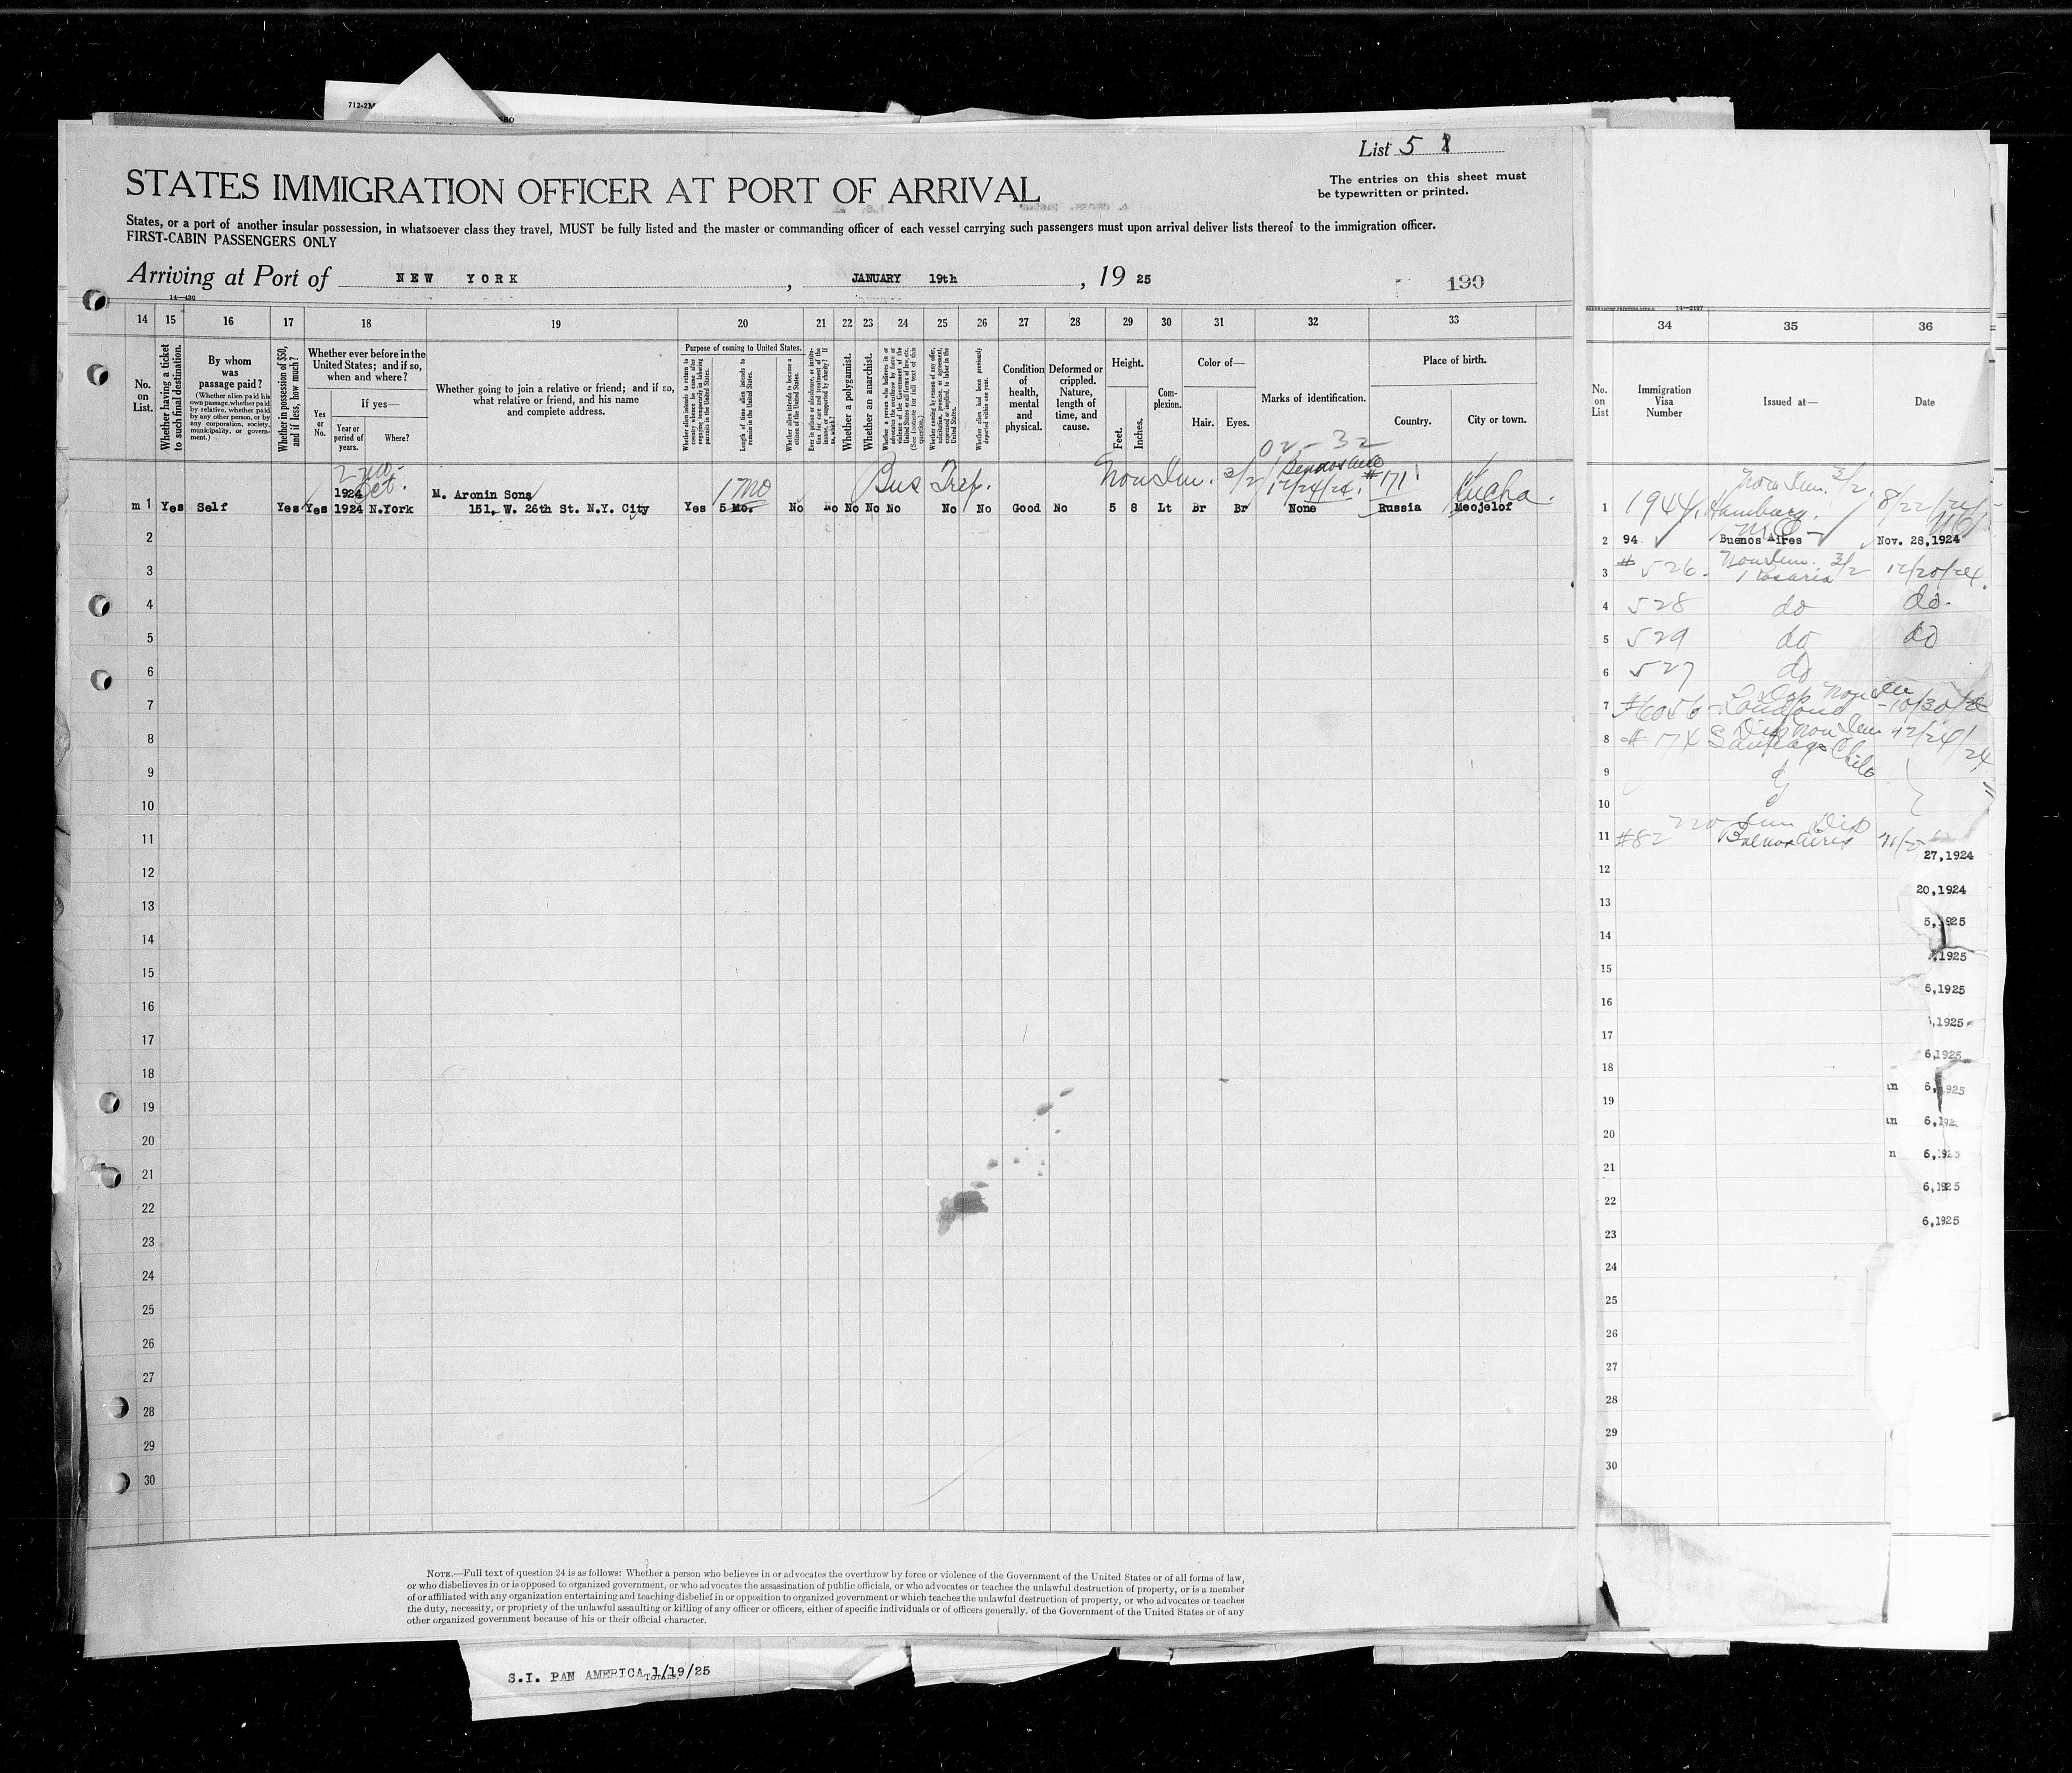 712-2M
List 5
STATES IMMIGRATION OFFICER AT PORT OF ARRIVAL
The entries on this sheet must
be typewritten or printed.
States, or a port of another insular possession, in whatsoever class they travel, MUST be fully listed and the master or commanding officer of each vessel carrying such passengers must upon arrival deliver lists thereof to the immigration officer.
FIRST-CABIN PASSENGERS ONLY
Arriving at Port of NEW YORK, JANUARY 19th, 19 25
190
14—430
14 15 16 17 18 19 20 21 22 23 24 25 26 27 28 29 30 31 32 33
No. on List.
Whether having a ticket to such final destination.
By whom was passage paid?
(Whether alien paid his own passage, whether paid by relative, whether paid by any other person, or by any corporation, society, municipality, or government.)
Whether in possession of $50, and if less, how much?
Whether ever before in the United States; and if so, when and where?
Yes or No.
If yes—
Year or period of years.
Where?
Whether going to join a relative or friend; and if so, what relative or friend, and his name and complete address.
Purpose of coming to United States.
Whether alien intends to return to country whence he came after engaging temporarily in laboring pursuits in the United States.
Length of time alien intends to remain in the United States.
Whether alien intends to become a citizen of the United States.
Ever in prison or almshouse, or institution for care and treatment of the insane, or supported by charity? If so, which?
Whether a polygamist.
Whether an anarchist.
Whether a person who believes in or advocates the overthrow by force or violence of the Government of the United States or all forms of law, etc. (See footnote for full text of this question.)
Whether coming by reason of any offer, solicitation, promise, or agreement, expressed or implied, to labor in the United States.
Whether alien had been previously deported within one year.
Condition of health, mental and physical.
Deformed or crippled. Nature, length of time, and cause.
Height.
Feet.
Inches.
Complexion.
Color of—
Hair.
Eyes.
Marks of identification.
Place of birth.
Country.
City or town.
2 mo-
1924 Oct.
M. Aronin Sons
1 mo
Non Imm. 3/2
02-32
Buenos Aires
12/24/24.
#171
m 1 Yes Self Yes Yes 1924 N.York 151, W. 26th St. N.Y. City Yes 5 Mo. No No No No No No No Good No 5 8 Lt Br Br None Russia Meojelof
2
3
4
5
6
7
8
9
10
11
12
13
14
15
16
17
18
19
20
21
22
23
24
25
26
27
28
29
30
NOTE.—Full text of question 24 is as follows: Whether a person who believes in or advocates the overthrow by force or violence of the Government of the United States or of all forms of law,
or who disbelieves in or is opposed to organized government, or who advocates the assassination of public officials, or who advocates or teaches the unlawful destruction of property, or is a member
of or affiliated with any organization entertaining and teaching disbelief in or opposition to organized government or which teaches the unlawful destruction of property, or who advocates or teaches
the duty, necessity, or propriety of the unlawful assaulting or killing of any officer or officers, either of specific individuals or of officers generally, of the Government of the United States or of any
other organized government because of his or their official character.
14—2197
34 35 36
No. on List
Immigration Visa Number
Issued at—
Date
Non Imm. 3/2
1 1944 Hamburg. 8/22/24
2 94 Buenos Aires Nov. 28,1924
Non Imm. 3/2
3 #526. Rosario 12/20/24.
4 528 do do.
5 529 do do
6 527 do
Dip Non Im
7 #6056 London 10/30/24
Dip Non Imm
8 #174 Santiago Chile 12/24/24
9
10
11 #82 Buenos Aires
12 27,1924
13 20,1924
14 5,1925
15 ,1925
16 6,1925
17 ,1925
18 6,1925
19 6,1925
20 6,192
21 6,1925
22 6,1925
23 6,1925
24
25
26
27
28
29
30
S.I. PAN AMERICA 1/19/25